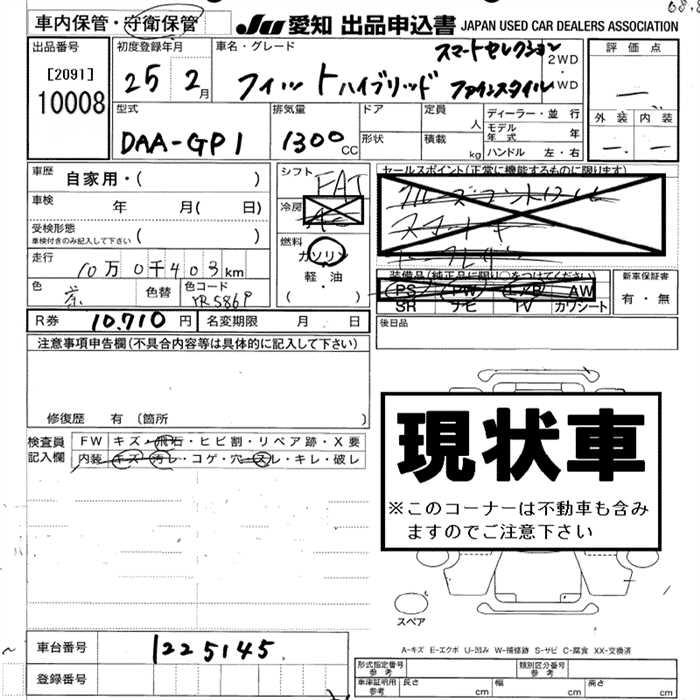 68.8
車内保管・守衛保管 JU 愛知 出品申込書 JAPAN USED CAR DEALERS ASSOCIATION
出品番号
[2091]
10008
初度登録年月
25 2月
車名・グレード
スマートセレクション
フィットハイブリッド ファインスタイル
2WD
4WD
評価点
外装 内装
型式
DAA-GP1
排気量
1300 CC
ドア
形状
定員 人
積載 kg
ディーラー・並行
モデル年式 年
ハンドル 左・右
車歴 自家用・( )
車検 年 月( 日)
受検形態
車検付きのみ記入して下さい ( )
走行 10万0千403km
色 茶 色替 色コード YR586P
シフト FAT
冷房 AC
燃料
ガソリン
軽・油
( ・ )
セールスポイント(正常に機能するものに限ります)
クルーズコントロール
スマートキー
装備品(純正品に限り○をつけてください)
PS PW エアB AW
SR ナビ TV カワシート
新車保証書
有・無
R券 10,710円 名変期限 月 日
後日品
注意事項申告欄(不具合内容等は具体的に記入して下さい)
修復歴 有(箇所 )
検査員記入欄
FW キズ・飛石・ヒビ割・リペア跡・X要
内装 キズ・汚レ・コゲ・穴・スレ・キレ・破レ
現状車
※このコーナーは不動車も含み
ますのでご注意下さい
スペア
A-キズ E-エクボ U-凹み W-補修跡 S-サビ C-腐食 XX-交換済
車台番号 1225145
登録番号
形式指定番号 参考
類別区分番号 参考
車庫証明用 参考 長さ cm 幅 cm 高さ cm